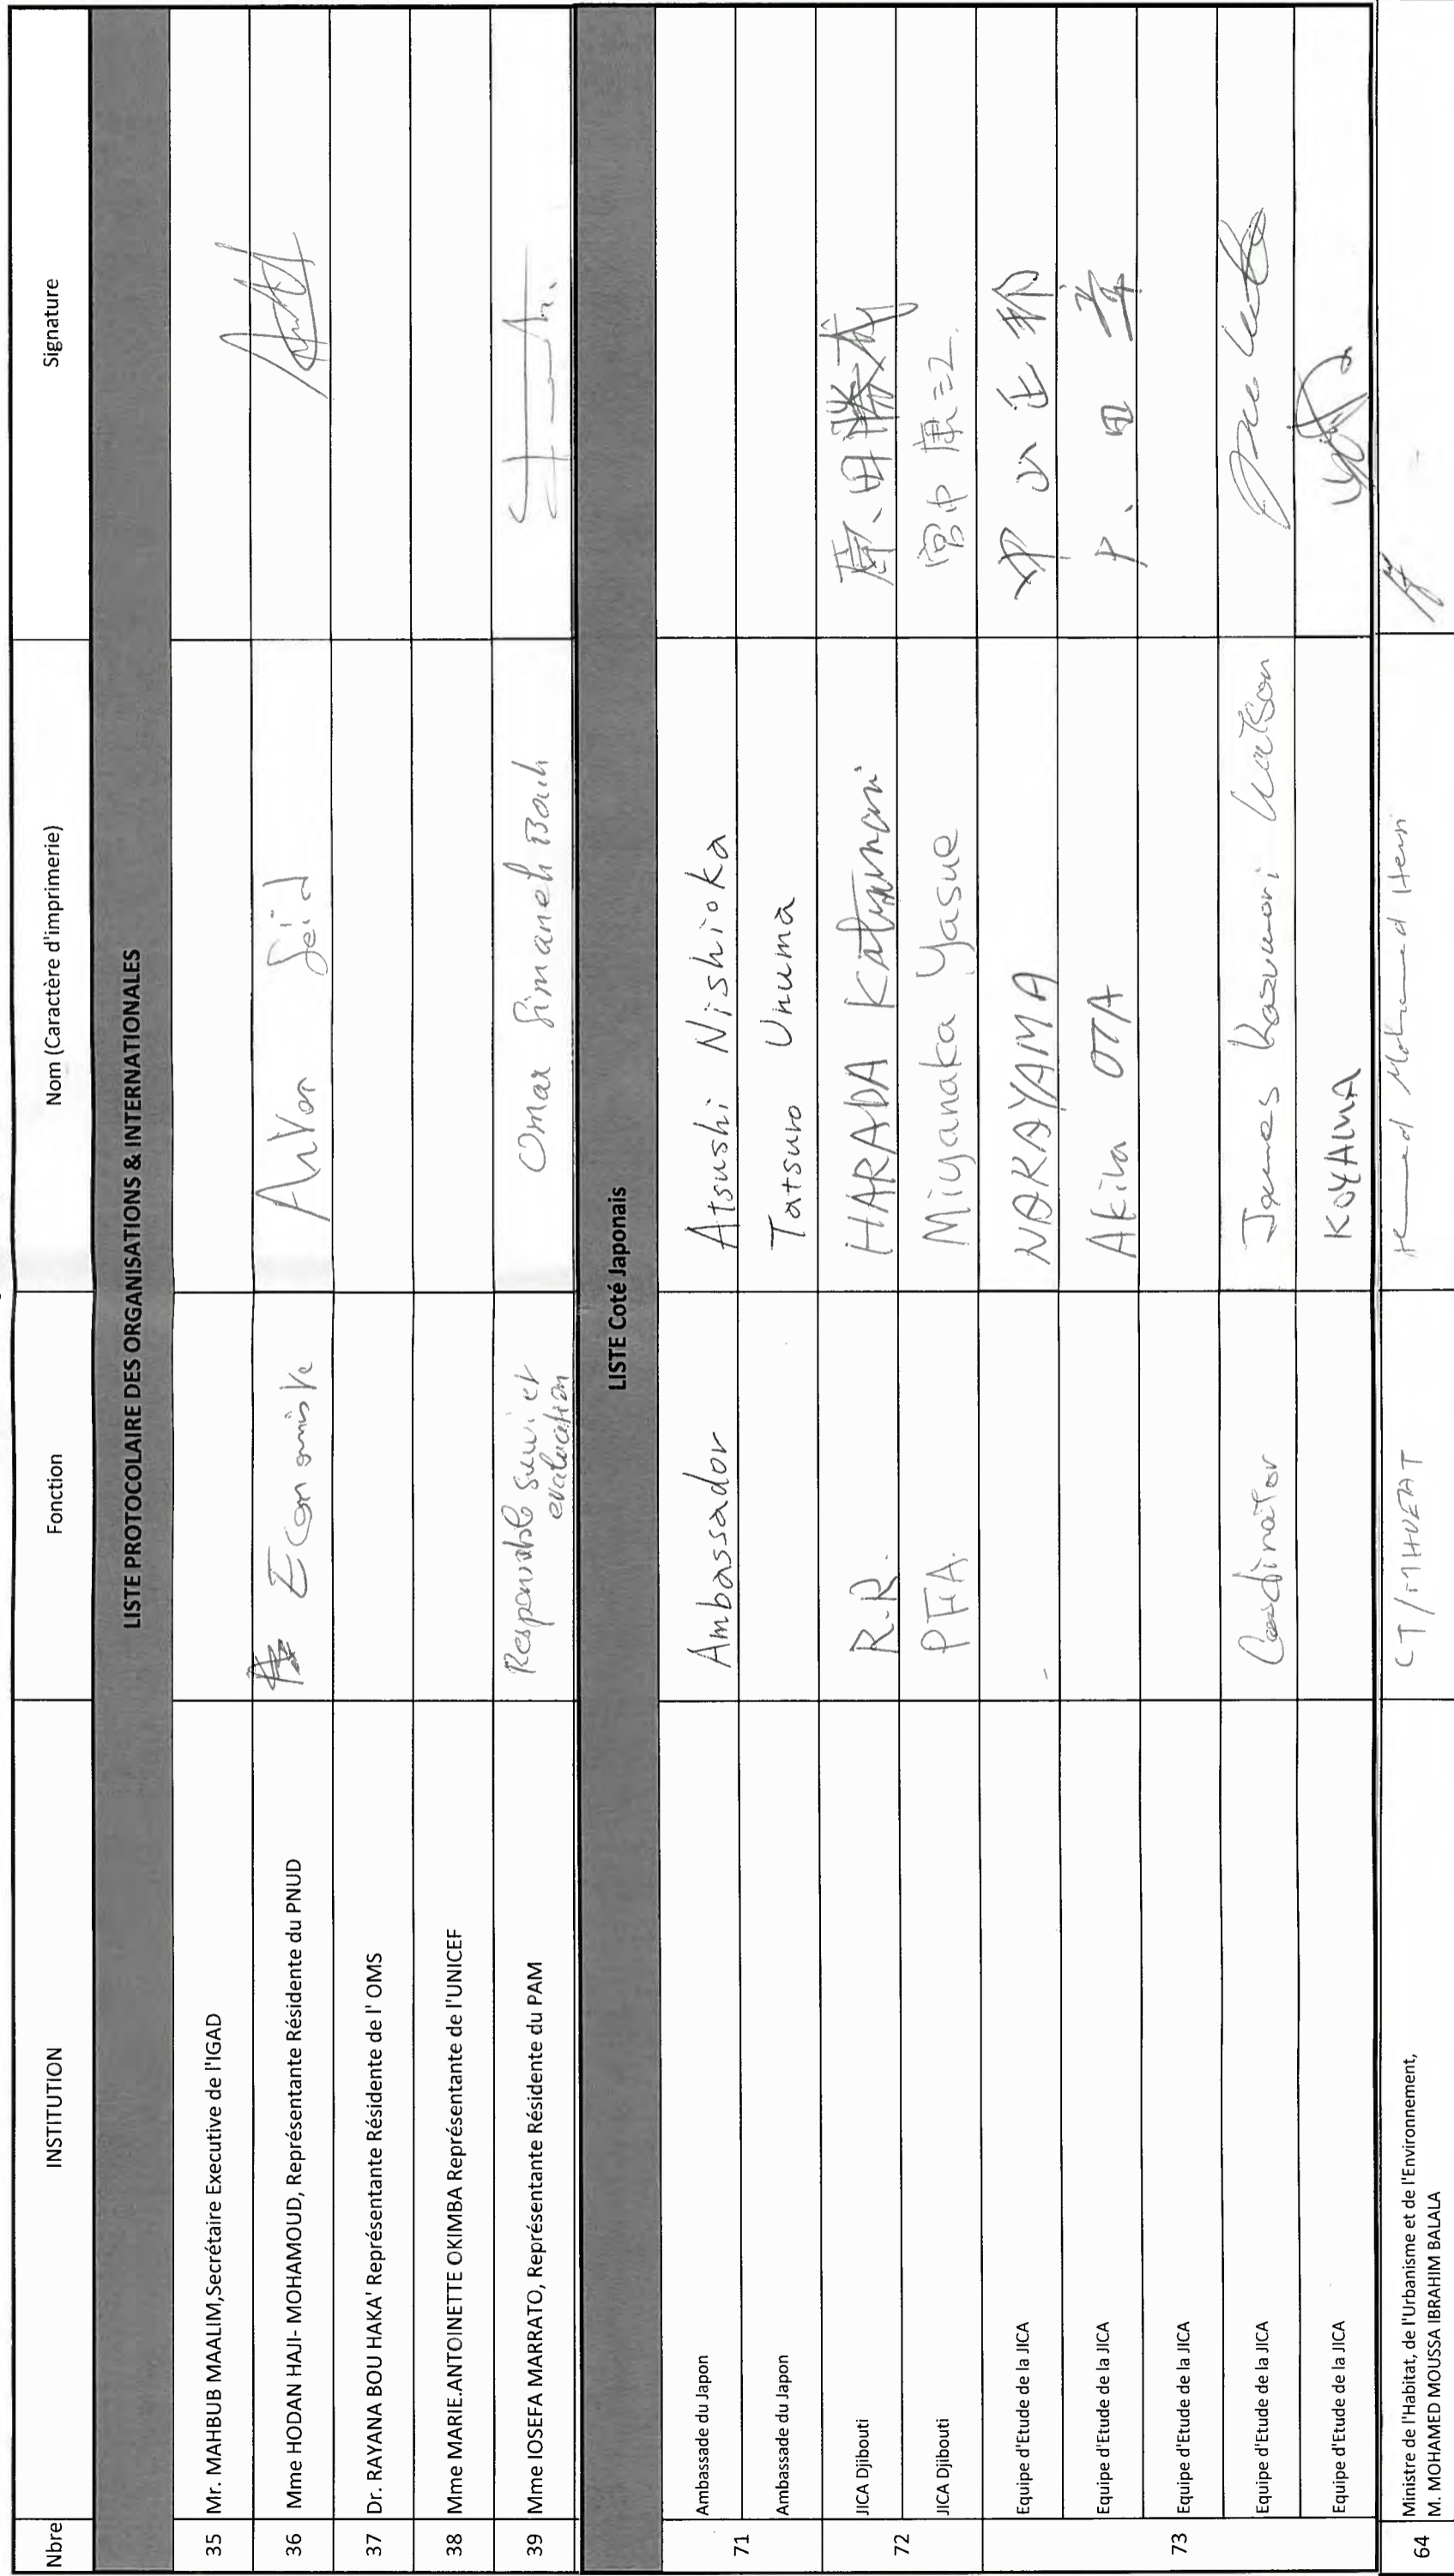 Nbre INSTITUTION Fonction Nom (Caractère d'imprimerie) Signature
LISTE PROTOCOLAIRE DES ORGANISATIONS & INTERNATIONALES
35 Mr. MAHBUB MAALIM,Secrétaire Executive de l'IGAD
36 Mme HODAN HAJI- MOHAMOUD, Représentante Résidente du PNUD Economiste
37 Dr. RAYANA BOU HAKA' Représentante Résidente de l' OMS
38 Mme MARIE.ANTOINETTE OKIMBA Représentante de l'UNICEF
39 Mme IOSEFA MARRATO, Représentante Résidente du PAM Responsable suivi et Omar Simaneh Bouh
evaluation
LISTE Coté Japonais
71 Ambassade du Japon Ambassador Atsushi Nishioka
Ambassade du Japon Tatsuro Unuma
72 JICA Djibouti R.R. HARADA Katsunari 原田勝成
JICA Djibouti PFA. Miyanaka Yasue 宮中康江
73 Equipe d'Etude de la JICA NAKAYAMA
Equipe d'Etude de la JICA Akira OTA
Equipe d'Etude de la JICA
Equipe d'Etude de la JICA Coordinator James Kazunori Watson
Equipe d'Etude de la JICA KOYAMA
64 Ministre de l'Habitat, de l'Urbanisme et de l'Environnement, CT/MHUEAT Mohamed
M. MOHAMED MOUSSA IBRAHIM BALALA